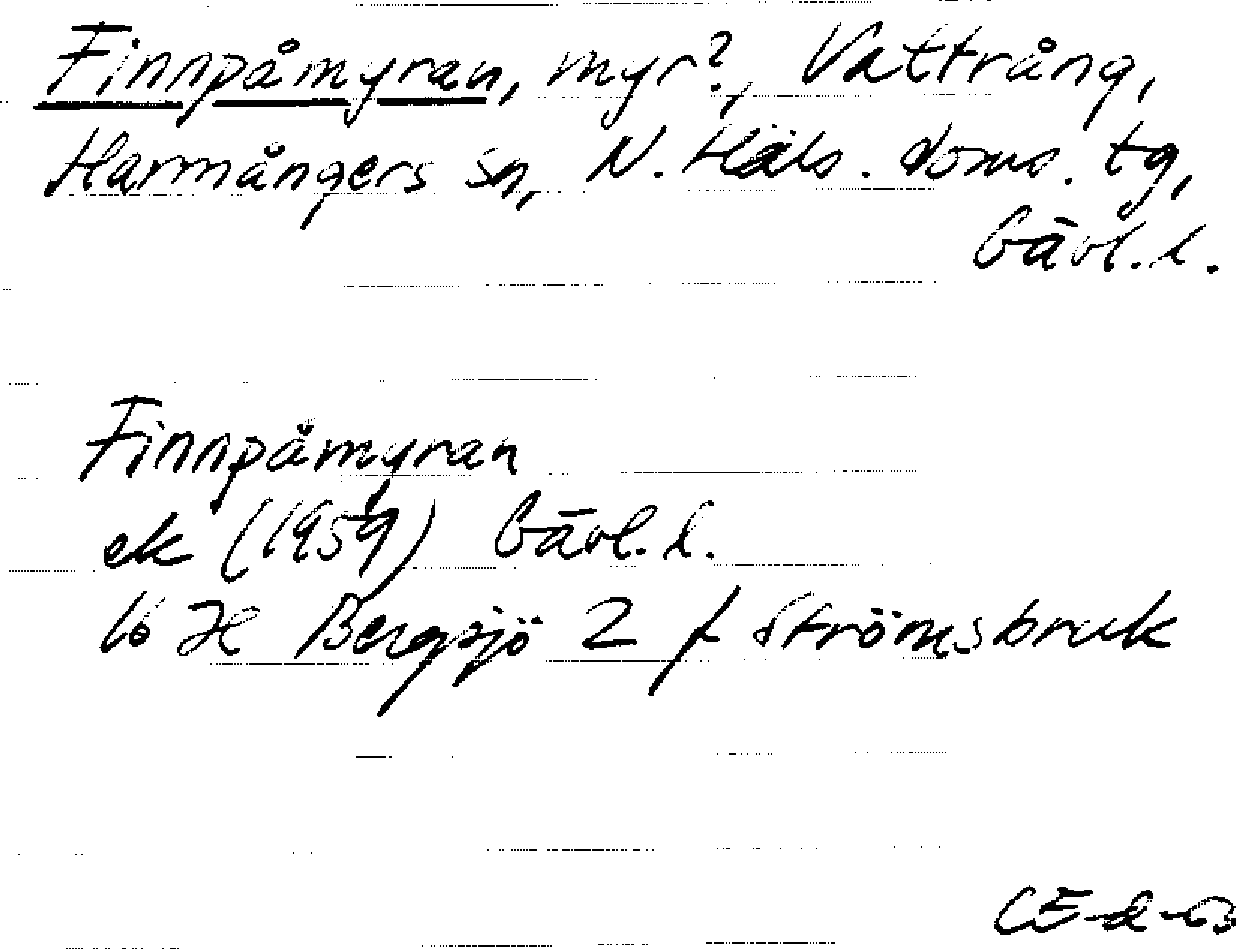 Finnpåmyran, myr?, Vattrång,
Harmångers sn, N. Häls. doms. tg,
Gävl. l.
Finnpåmyran
ek (1959) Gävl. l.
16 H Bergsjö 2 f Strömsbruk